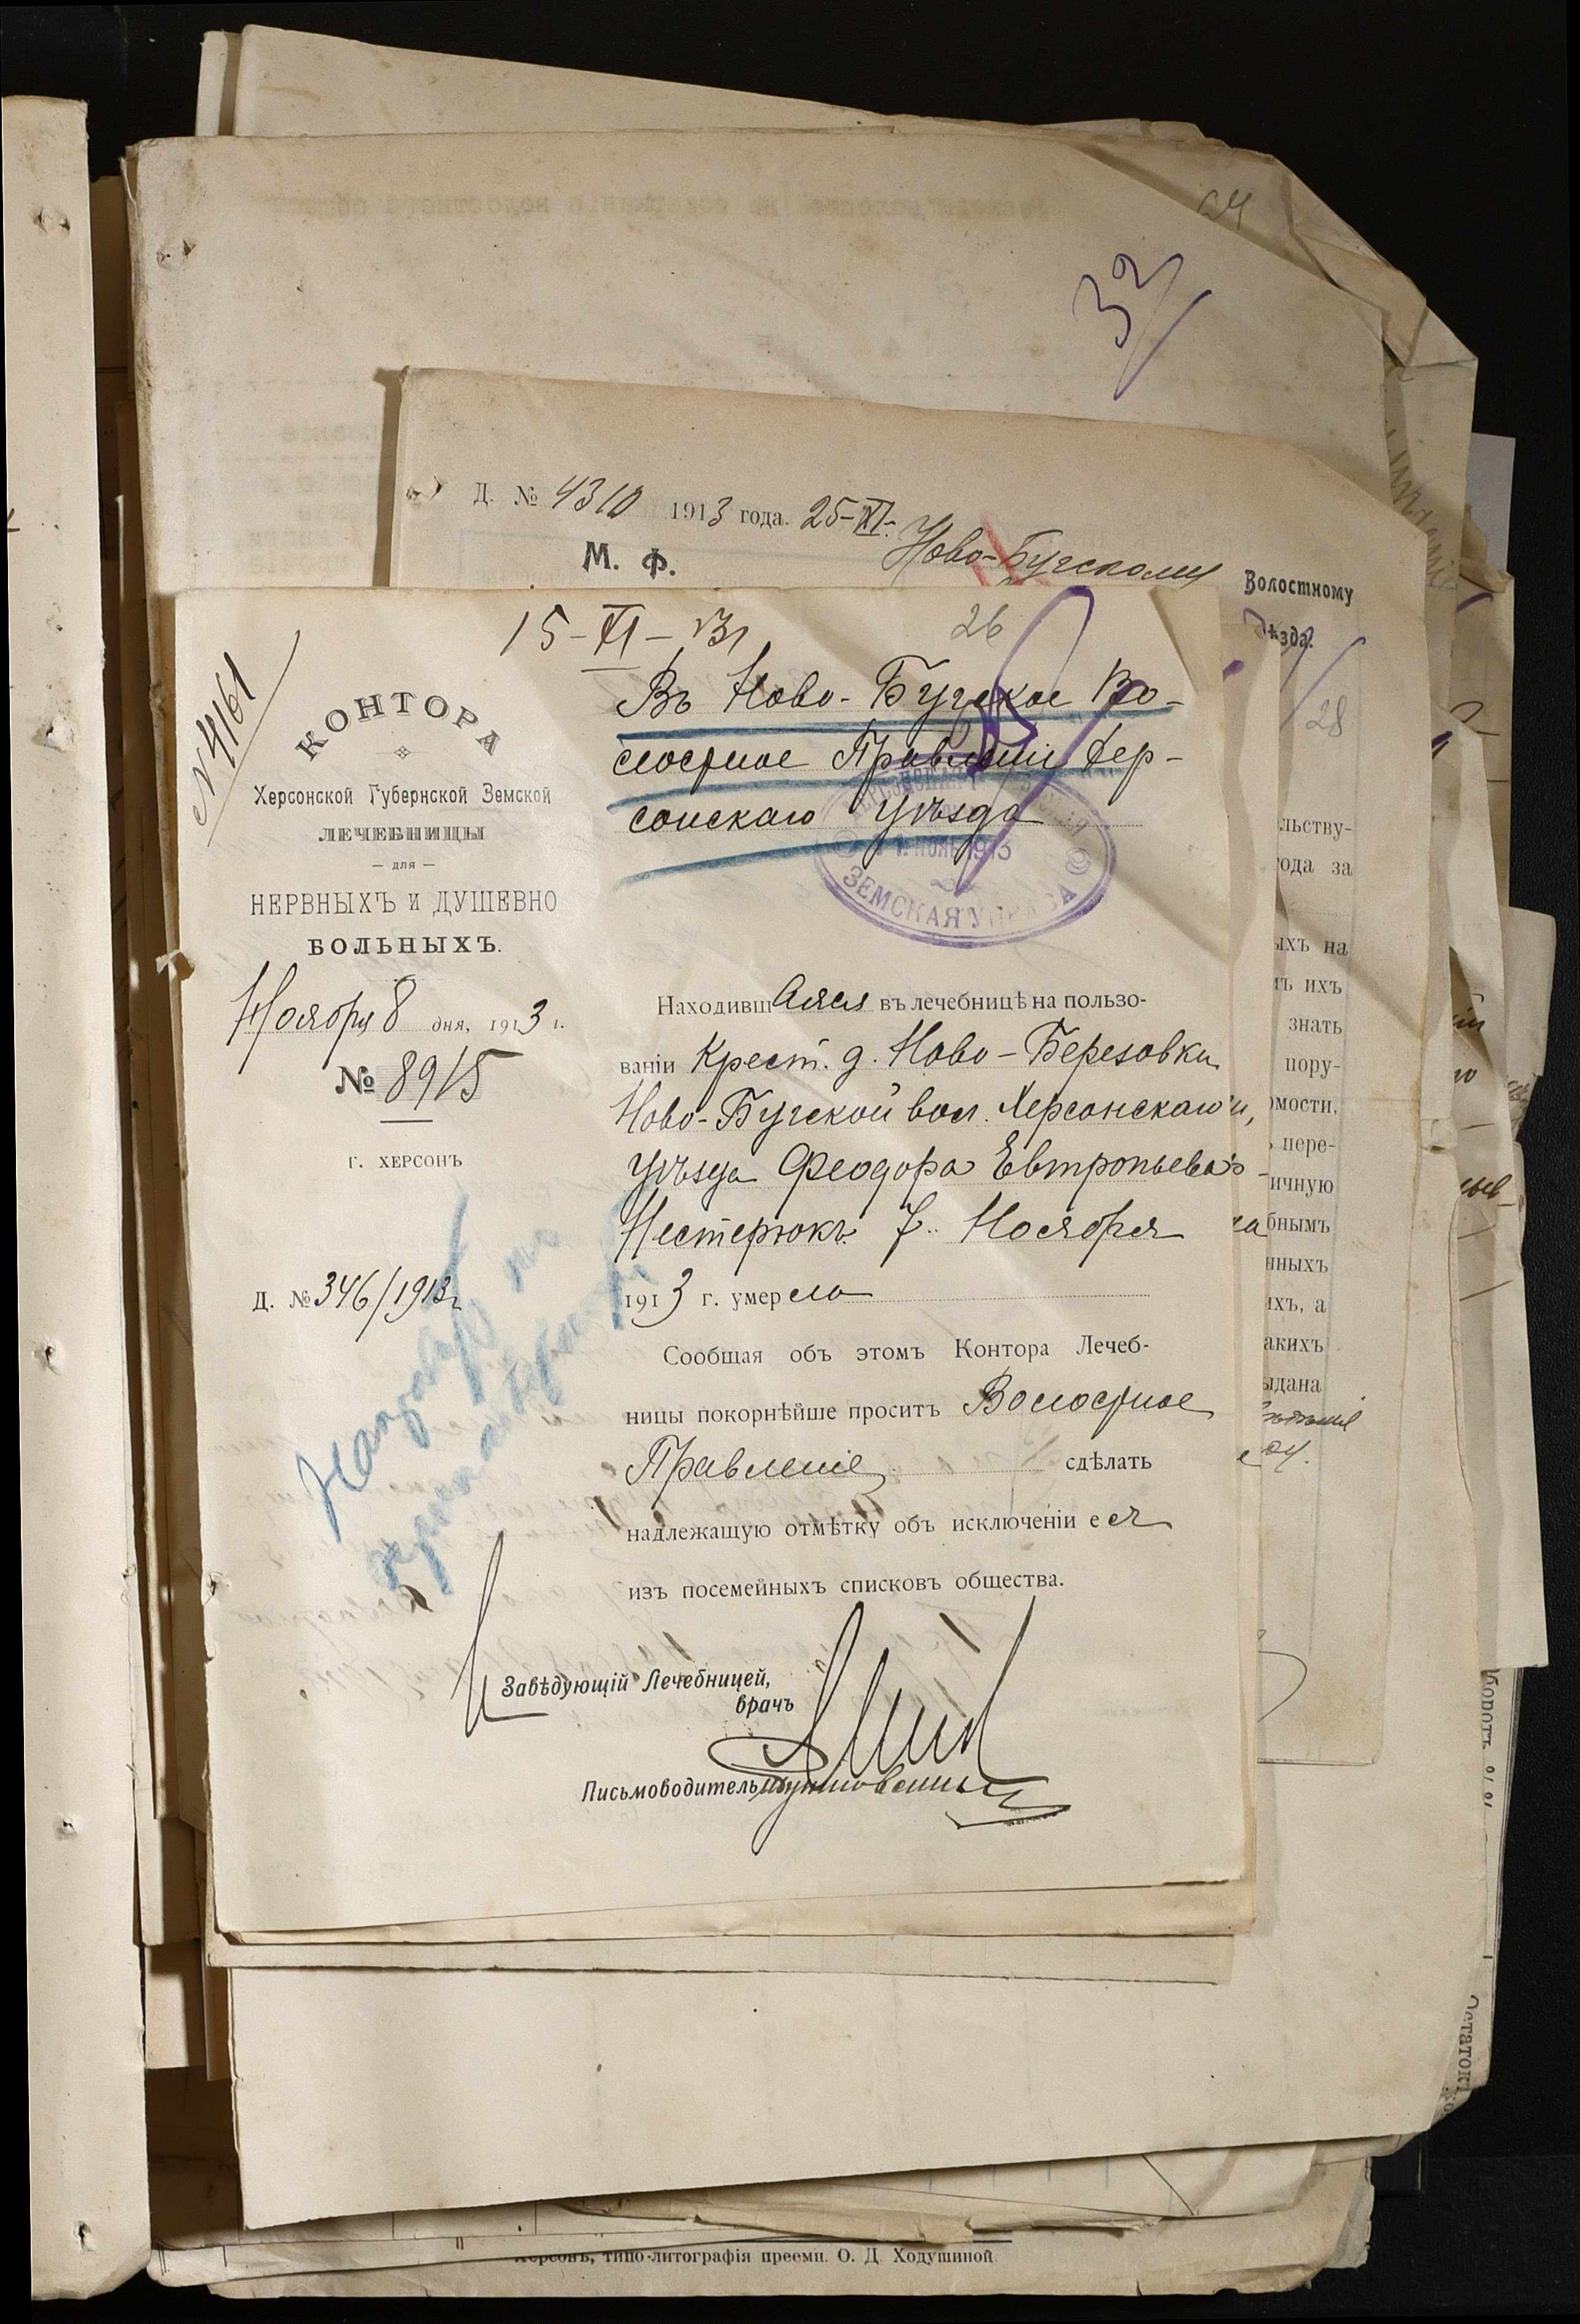 24
32
Д. № 4310 1913 года. 25-XI-
Ново-Бугскому Волостному
М. Ф.
ѣзда.
28
15-XI-13 г.
26
№ 4161
КОНТОРА
Херсонской Губернской Земской
ЛЕЧЕБНИЦЫ
— для —
НЕРВНЫХЪ и ДУШЕВНО
БОЛЬНЫХЪ.
Ноября 8 дня, 1913 г.
№ 8915
Г. ХЕРСОНЪ
Д. № 346/1913 г.
Въ Ново-Бугское Во-
лостное Правленіе Хер-
сонскаго Уѣзда
ЗЕМСКАЯ УПРАВА
Находившаяся въ лечебницѣ на пользо-
ваніи Крест. д. Ново-Березовки
Ново-Бугской вол. Херсонскаго
Уѣзда Феодора Евтропьева
Нестерюкъ 7 Ноября
1913 г. умерла
Сообщая объ этомъ Контора Лечеб-
ницы покорнѣйше проситъ Волостное
Правленіе сдѣлать
надлежащую отмѣтку объ исключеніи ея
изъ посемейныхъ списковъ общества.
Завѣдующій Лечебницей,
врачъ
Письмоводитель
льству-
года за
ыхъ на
ихъ
знать
пору-
мости,
пере-
ичную
бнымъ
нныхъ
ихъ, а
акихъ
ыдана
Остатокъ
Херсонъ, типо-литографія преемн. О. Д. Ходушиной.